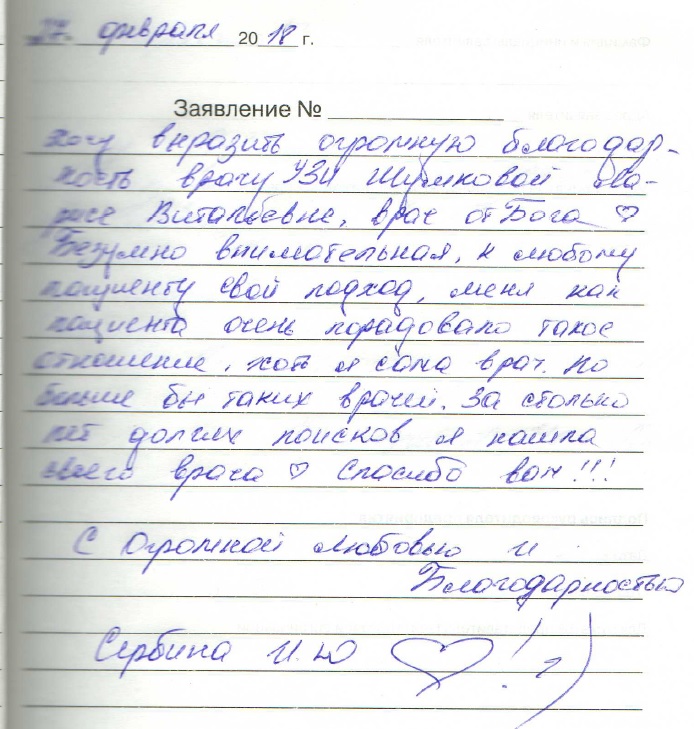 27. февраля 2018 г.
Заявление №
Хочу выразить огромную благодар-
ность врачу УЗИ Шумковой Ла-
рисе Витальевне, врач от Бога ♡
Безумно внимательная, к любому
пациенту свой подход, меня как
пациента очень порадовало такое
отношение, хоть я сама врач. По
больше бы таких врачей. За столько
лет долгих поисков я нашла
своего врача ♡ Спасибо вам!!!
С Огромной любовью и
Благодарностью
Сербина И.Ю ♡!